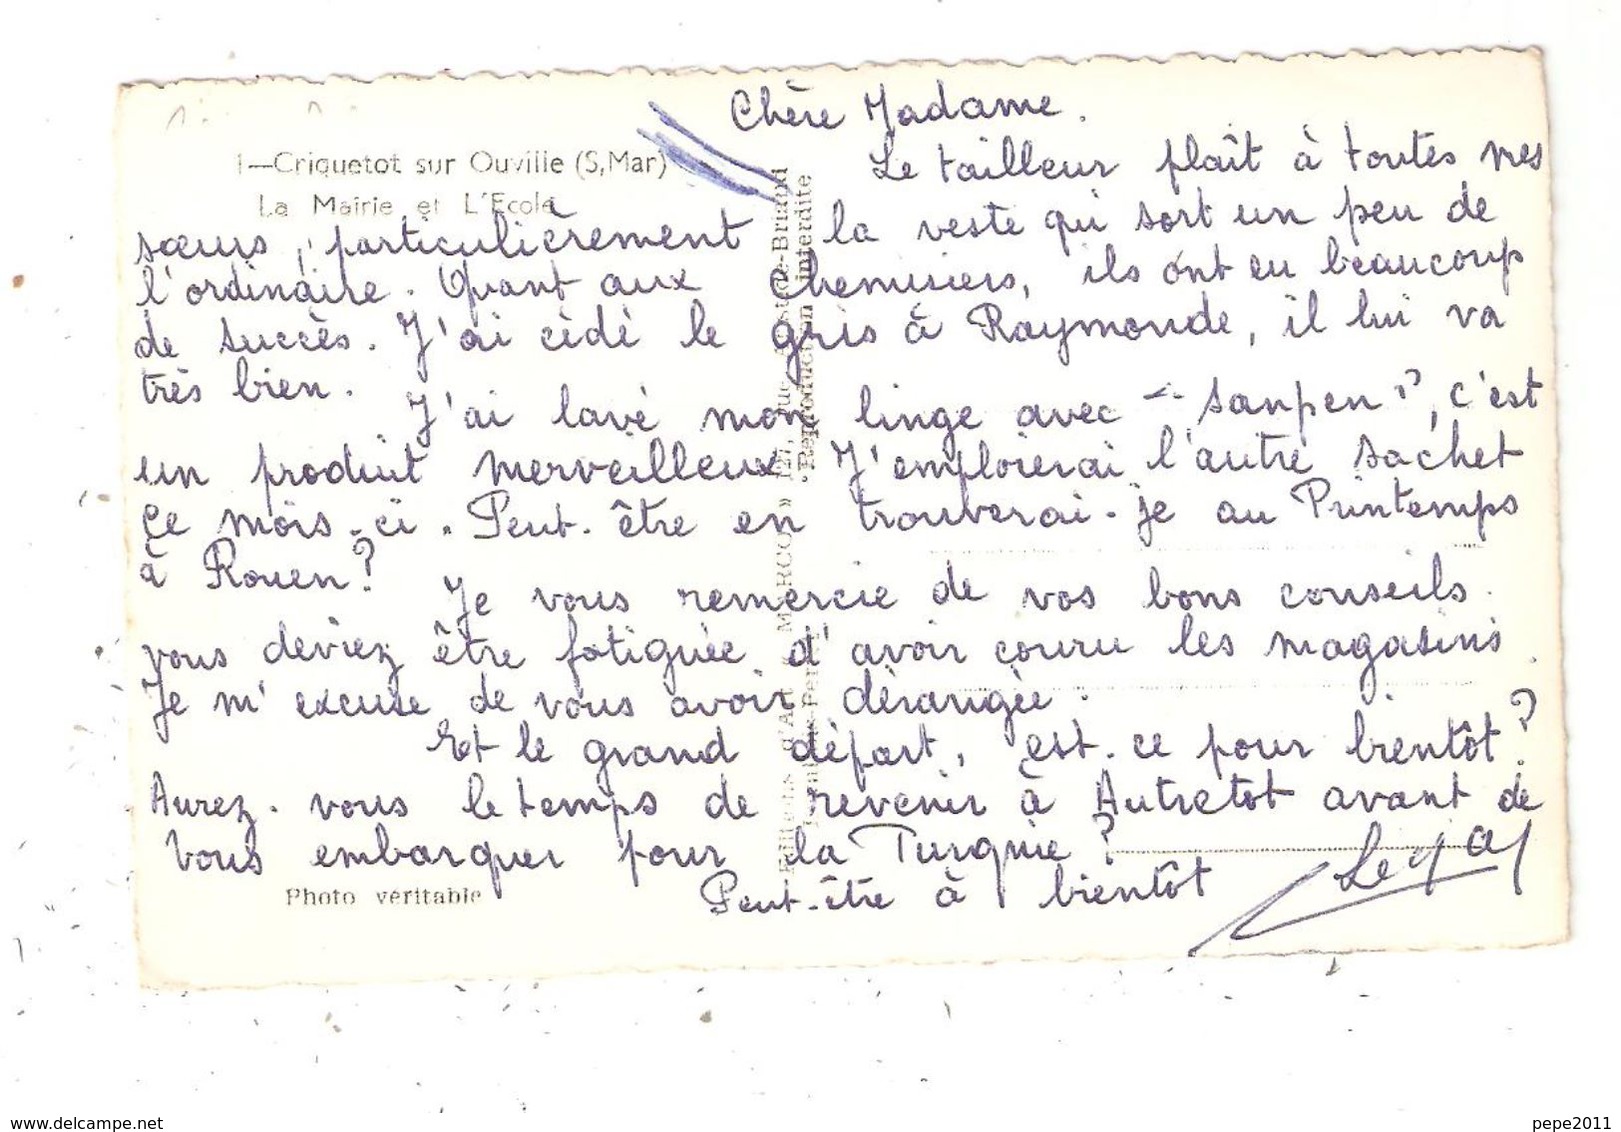 Chère Madame.
1—Criquetot sur Ouville (S,Mar)
La Mairie et L'Ecole
Le tailleur plaît à toutes mes
sœurs, particulièrement la veste qui sort un peu de
l'ordinaire. Quant aux chemisiers, ils ont eu beaucoup
de succès. J'ai cédé le gris à Raymonde, il lui va
très bien.
J'ai lavé mon linge avec "sanpen", c'est
un produit merveilleux. J'emploierai l'autre sachet
ce mois-ci. Peut-être en trouverai-je au Printemps
à Rouen?
Je vous remercie de vos bons conseils.
vous deviez être fatiguée d'avoir couru les magasins.
Je m'excuse de vous avoir dérangée.
Et le grand départ, est-ce pour bientôt?
Aurez-vous le temps de revenir à Autretot avant de
vous embarquer pour la Turquie?
Peut-être à bientôt
Photo véritable
Editions d'Art « MARCO » 127, rue Aristide-Briand
Reproduction interdite
www.delcampe.net
pepe2011